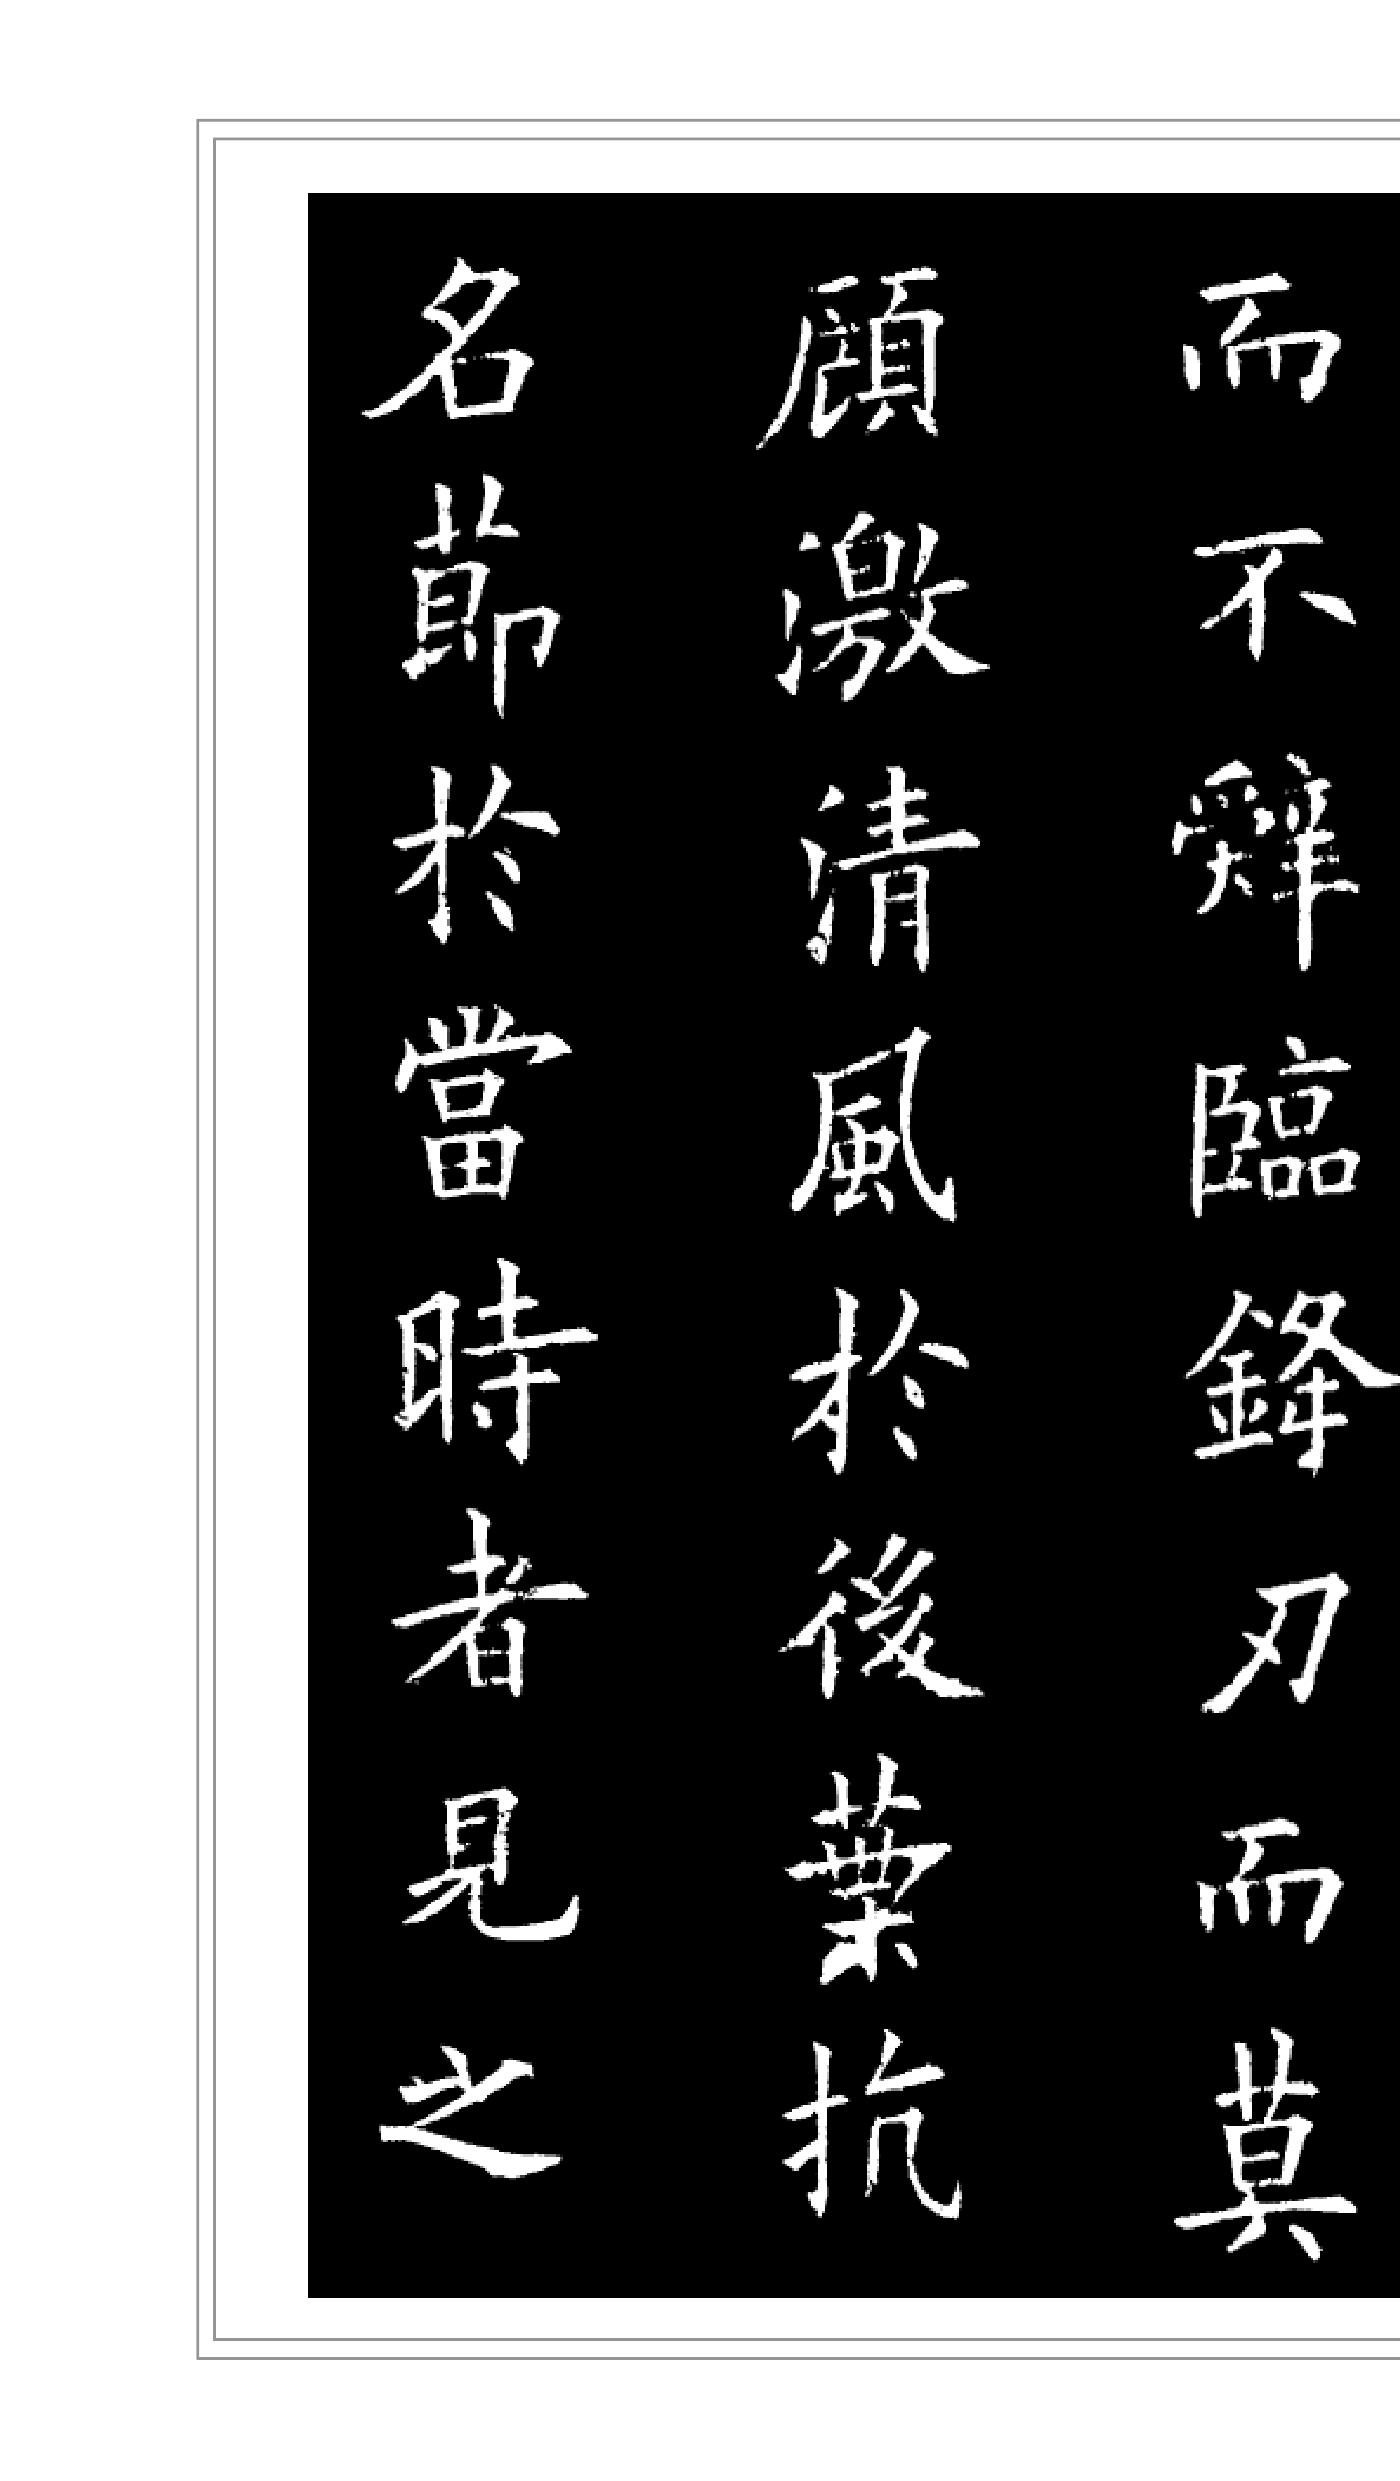 而不辤臨鋒刃而莫
顧激清風於後葉抗
名節於當時者見之